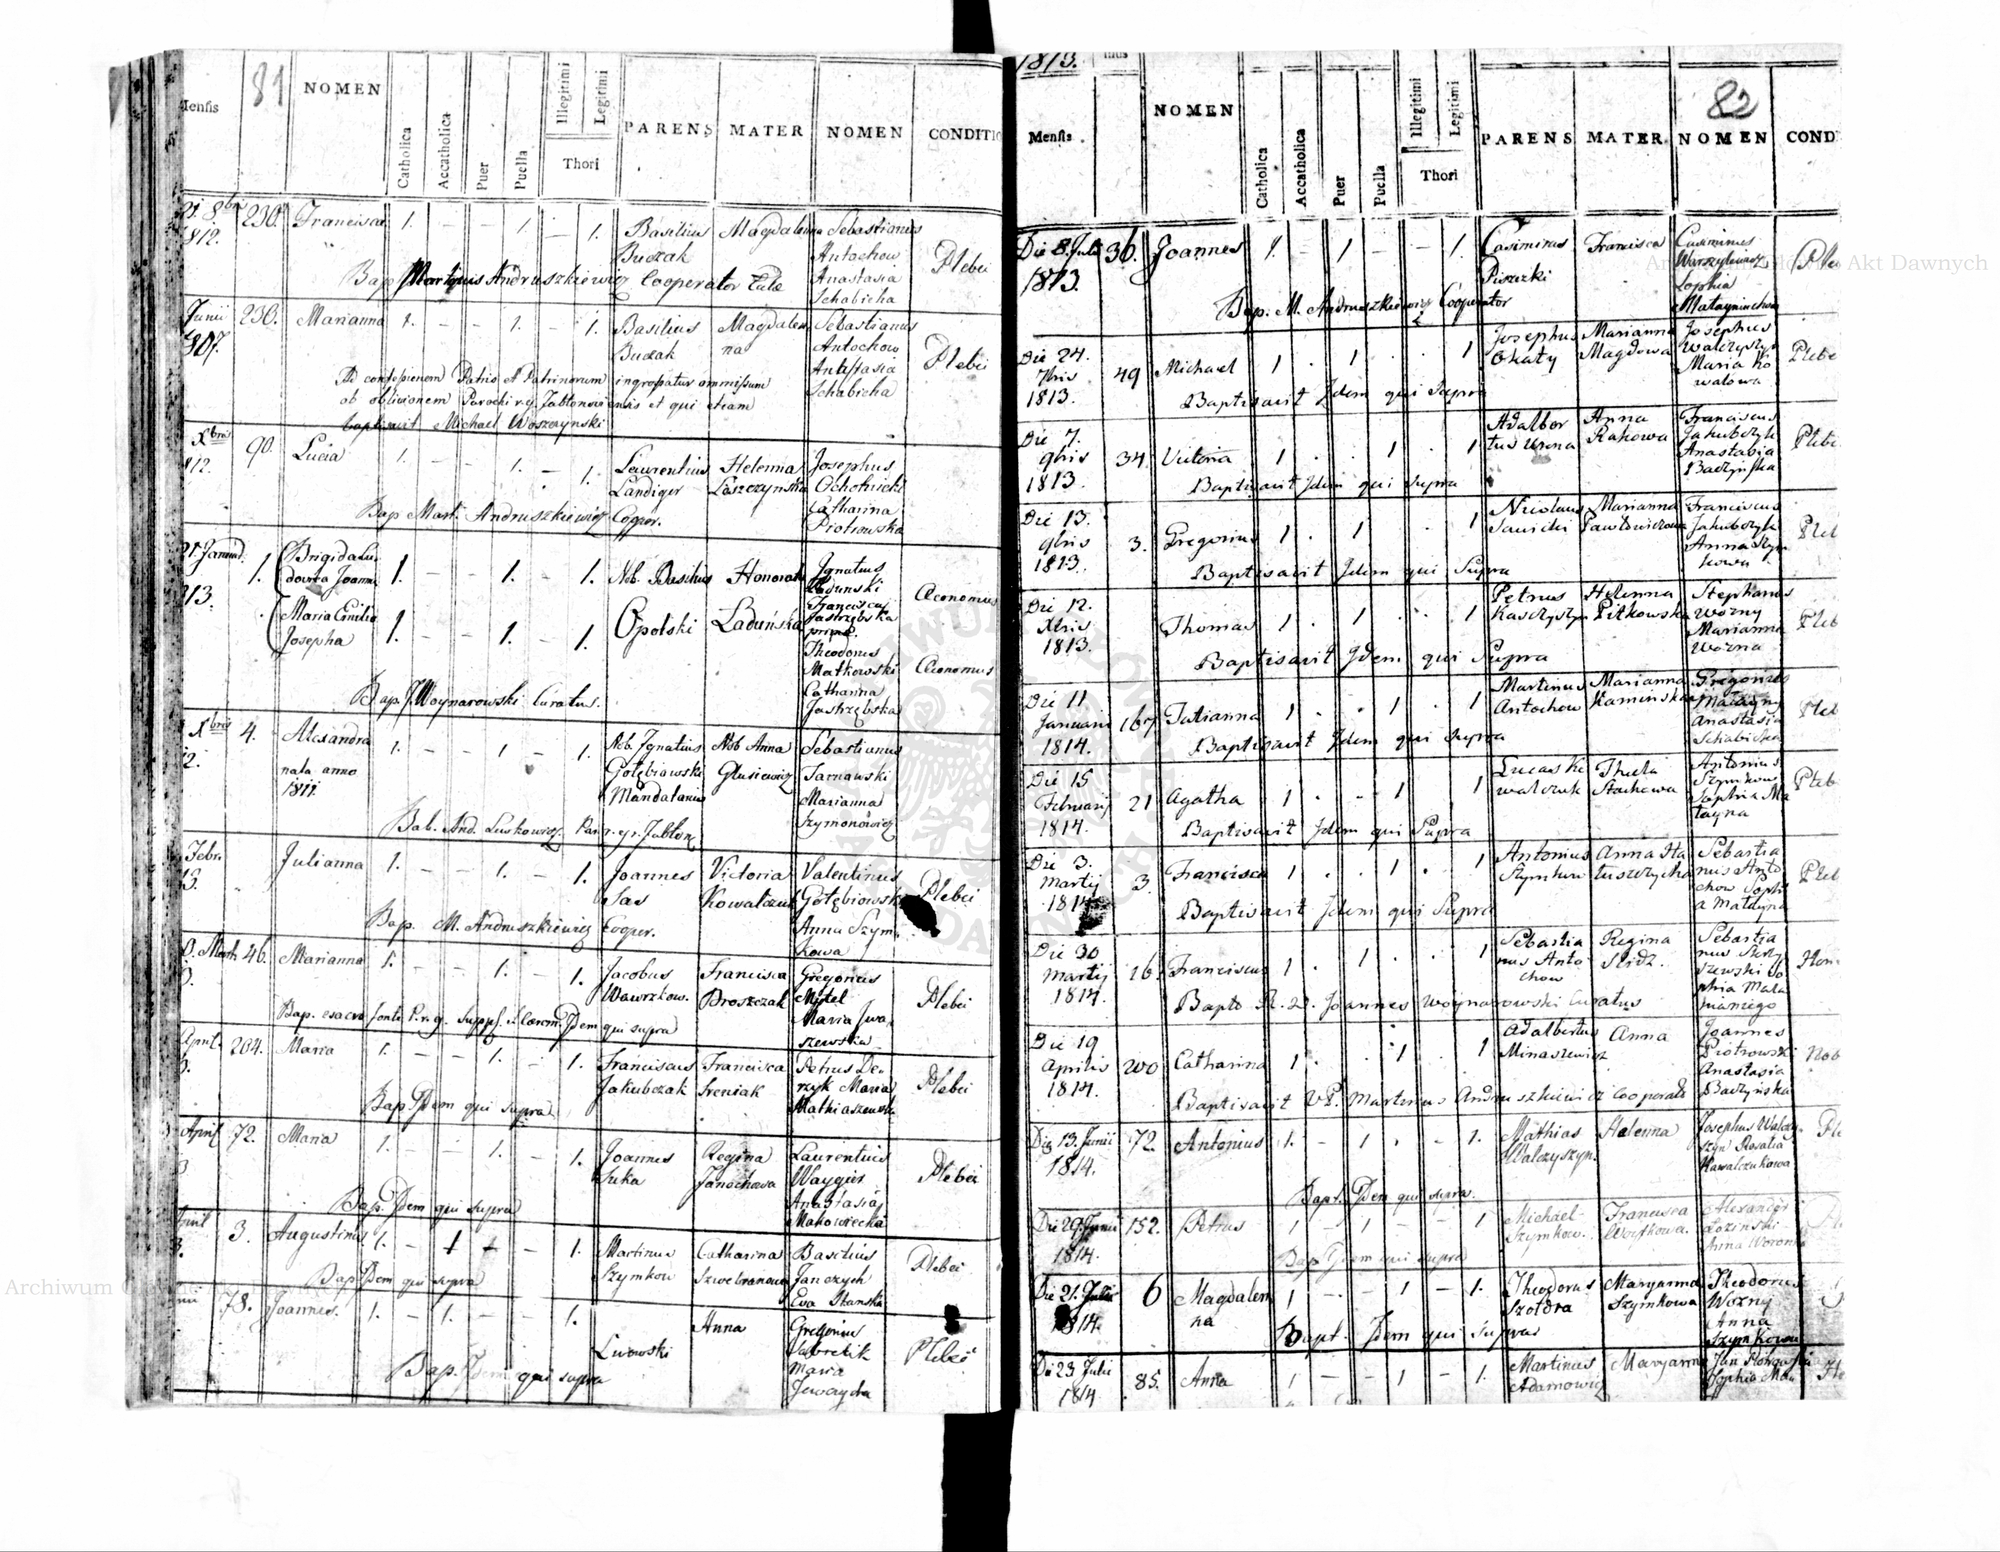 Mensis
81
NOMEN
Catholica
Accatholica
Puer
Puella
Illegitimi
Legitimi
Thori
PARENS
MATER
NOMEN
CONDITIO
21. 8bris 230. Francisca 1. – – 1. – 1. Basilius Magdalena Sebastianus
1812. Buczak Antochow Plebei
Bap Martinus Andruszkiewicz Cooperator Anastasia
Schabicha
Junii 230. Marianna 1. – – 1. – 1. Basilius Magdale Sebastianus
807. Buczak na Antochow Plebei
Patris et Patrinorum ommissum Antastasia
ob oblivionem Parochi r. g. et qui etiam Schabicha
baptisavit Michael Woszczynski
Xbris 90. Lucia 1. – – 1. – 1. Laurentius Helenna Josephus
812. Landiger Laszczynska Ochotnicki
Bap Mart. Andruszkiewicz Cooper. Catharina
Piotrowska
21. Januar. 1. Brigida Lu
dovica Joanna 1. – – 1. – 1. Nob. Basilius Honorata Ignatius
813. Ladunski Oeconomus
Maria Emilia Francisca
Josepha 1. – – 1. – 1. Opolski Ladunska Jastrzębska
Theodorus
Matkowski Oeconomus
Catharina
Bap. J. Woynarowski Curatus. Jastrzębska
Xbris 4. Alexandra 1. – – 1 – 1. Nob. Ignatius Nob Anna Sebastianus
2. nata anno Gołębiowski Glusiewicz Tarnawski
1811 Mandatarius Marianna
Bab. And. Luskowicz Par. r. gr. Jablon. Szymonowicz
Febr. Julianna 1. – – 1. – 1. Joannes Victoria Valentinus
13. Sas Kowalczuk Gołębiowski Plebei
Bap. M. Andruszkiewicz Cooper. Anna Szym
kowa
Marti 46. Marianna 1. – – 1. – 1. Jacobus Francisca Gregorius
3. Wawrzkow. Broszczak Mysel Plebei
Bap. e sacro fonte P. r. g. Idem qui supra Maria Iwa
szewska
April. 204. Maria 1. – – 1. – 1. Franciscus Francisca Petrus De
3. Jakubczak Sreniak rzyk Maria Plebei
Bap. Idem qui supra Mathiaszewsk
April 72. Maria 1. – – 1. – 1. Joannes Regina Laurentius
3 Suka Janochowa Waygier Plebei
Bap. Idem qui supra Anastasia
Makowiecka
April 3. Augustinus 1. – 1 – 1. Martinus Catharina Basilius
3. Szymkow Szwebranowa Janczych Plebei
Bap Idem qui supra Eva Skanska
78. Joannes. 1. – 1. – – 1. Lwowski Anna Gregorius
Maria Plebei
Bap. Idem qui supra
1813.
Mensis
NOMEN
Catholica
Accatholica
Puer
Puella
Illegitimi
Legitimi
Thori
PARENS
MATER.
82
NOMEN
COND
Die 8. Julii 36. Joannes 1. – 1 – – 1. Casimirus Francisca Casimirus
1813. Piszczki Warszylewicz Ple
Bap. M. Andruszkiewicz Cooperator Sophia
Matayninchowa
Die 24. 49 Michael 1 . 1 . . 1 Josephus Marianna Josephus
7bris Okaty Magdowa Walczyszyn Plebe
1813. Baptisavit Idem qui Supra Maria Ko
walowa
Die 7. 34. Victoria 1 . . 1 . 1 Adalber Anna Franciscus
9bris tus Urena Rakowa Jakubczyk Plebe
1813. Baptisavit Idem qui Supra Anastasia
Baczyńska
Die 13. 3. Gregorius 1 . 1 . . 1 Nicolaus Marianna Franciscus
9bris Sawicki Pawłowiczowa Jakubczyk Pleb
1813. Baptisavit Idem qui Supra Anna Szym
kowa
Die 12. Thomas 1 . 1 . . 1 Petrus Helenna Stephanus
Xbris Kaszczyszyn Pitkowska Wozny Pleb
1813. Baptisavit Idem qui Supra Marianna
Wozna
Die 11 167 Tatianna 1 . . 1 . 1 Martinus Marianna Gregorius
Januarii Antochow Kaminska Matayny Pleb
1814. Baptisavit Idem qui Supra Anastasia
Schabicka
Die 15 21 Agatha 1 . . 1 . 1 Lucas Ko Thecla Antonius
Februarij walczuk Stachowa Szymkow Plebe
1814. Baptisavit Idem qui Supra Sophia Ma
tayna
Die 3. 3. Francisca 1 . . 1 . 1 Antonius Anna Sebastia
Martij Szymkow nus Anto Pleb
1814 Baptisavit Idem qui Supra chow Sophi
a Matayna
Die 30 16. Franciscus 1 . 1 . . 1 Sebastia Regina Sebastia
Martij nus Anto Slidz. nus Skrzy
1814. chow szewski So
Bapt. R. D. Joannes Woynarowski Curatus phia Mata
Die 19 200 Catharina 1 . . 1 . 1 Adalbertus Anna Joannes
Aprilis Minaszewicz Piotrowski Nob
1814. Anastasia
Baptisavit V. P. Martinus Andruszkiewicz Cooperator Baczyńska
Die 13. Junii 72. Antonius 1. – 1 . – 1. Mathias Helenna Josephus Walczy
1814. Walczyszyn. szyn Rosalia Ple
Bapt. Idem qui supra. Kowalczukowa
Die 29. Junii 152. Petrus 1 – 1 – – 1 Michael Francisca Alexander
1814. Szymkow. Woytkowa. Łozinski
Bap Idem qui supra Anna Woron
Die 21. Julii 6 Magdalen 1 – – 1 – 1. Theodorus Maryanna Theodorus
1814. na Szoldra Szymkowa Wozny
Bapt. Idem qui supra Anna
Szymkowa
Die 23 Julii 85. Anna 1 – – 1 – 1. Martinus Maryanna Jan
1814 Adamowicz Sophia
Archiwum Główne Akt Dawnych
Archiwum Główne Akt Dawnych
ARCHIWUM GŁÓWNE AKT DAWNYCH